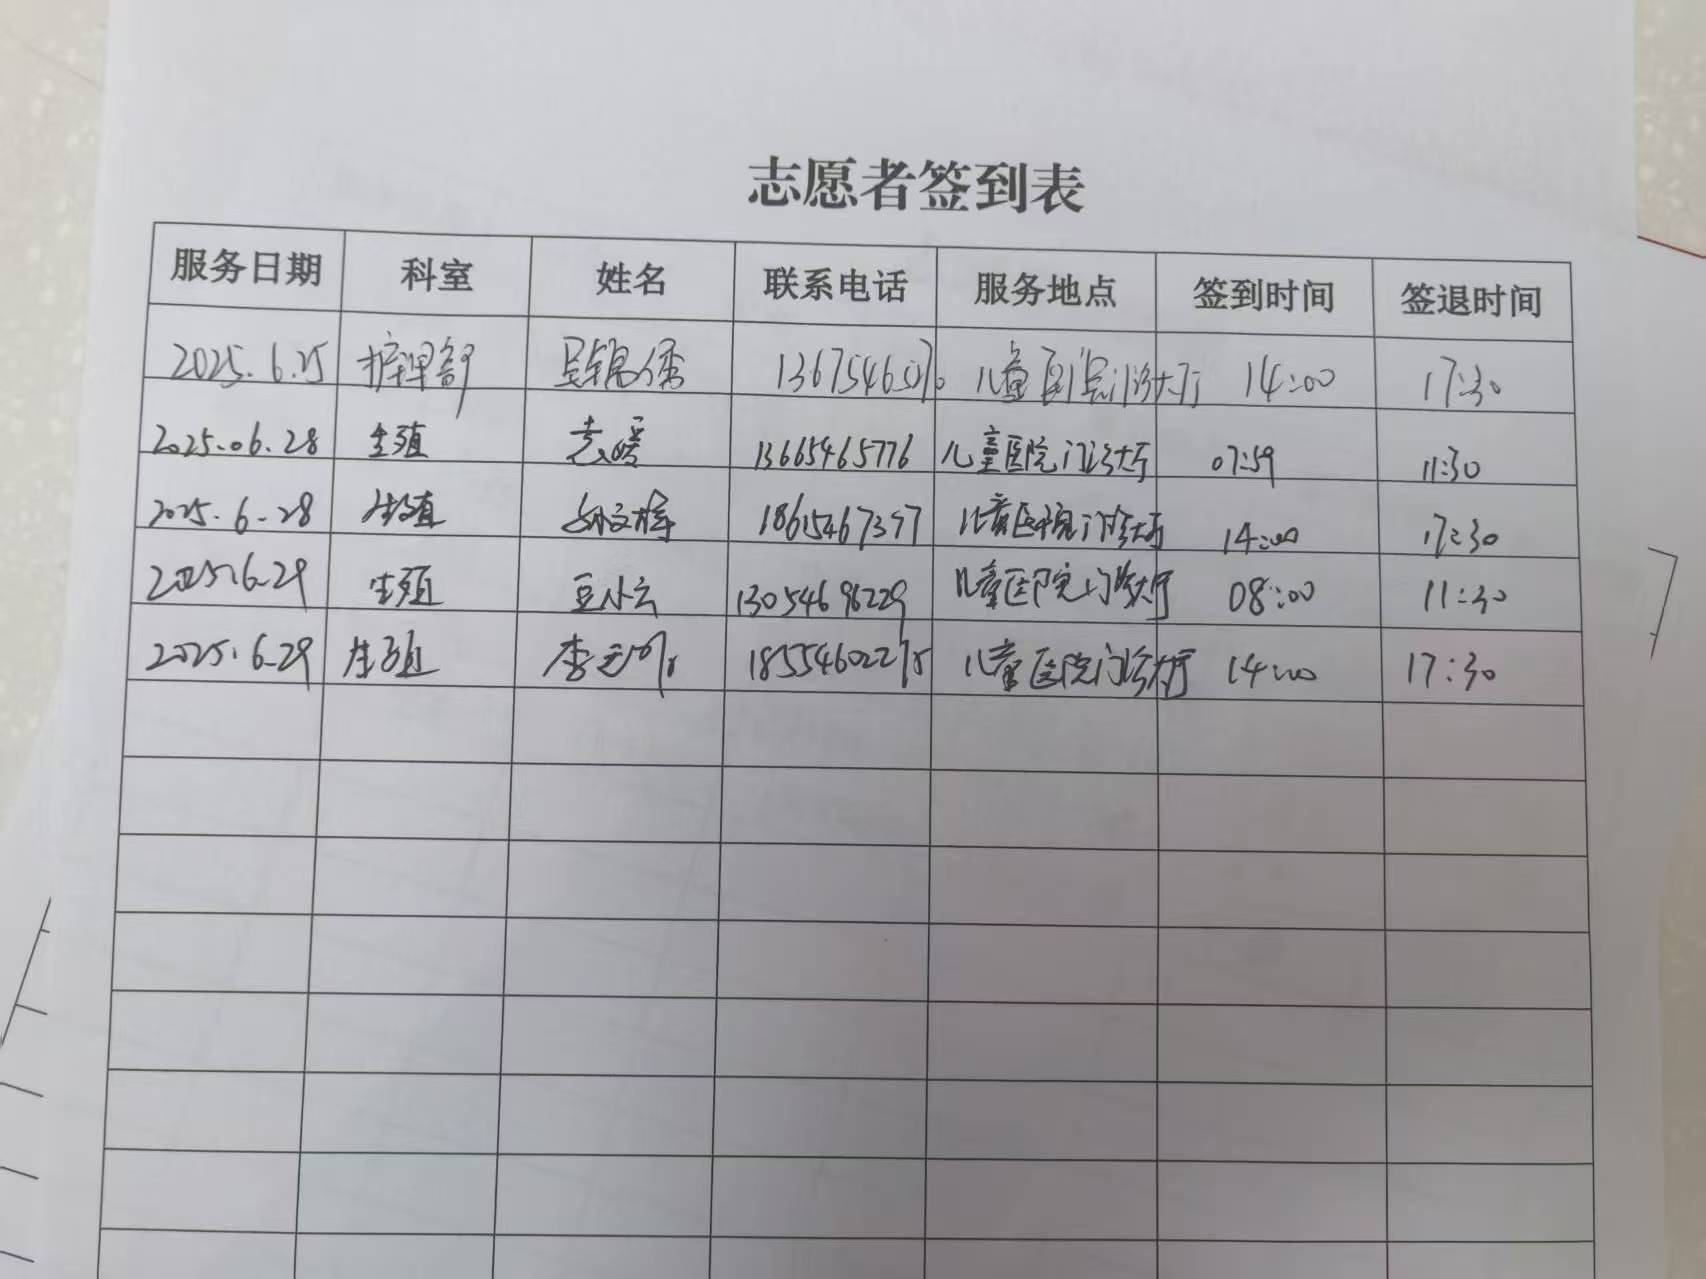 志愿者签到表
服务日期 科室 姓名 联系电话 服务地点 签到时间 签退时间
2025.6.25 护理部 儿童医院门诊大厅 14:00 17:30
2025.06.28 生殖 袁媛 13665465776 儿童医院门诊大厅 07:59 11:30
2025.6.28 生殖 儿童医院门诊大厅 14:00 17:30
2025.6.29 生殖 豆小云 13054696229 儿童医院门诊大厅 08:00 11:30
2025.6.29 生殖 李 儿童医院门诊大厅 14:00 17:30